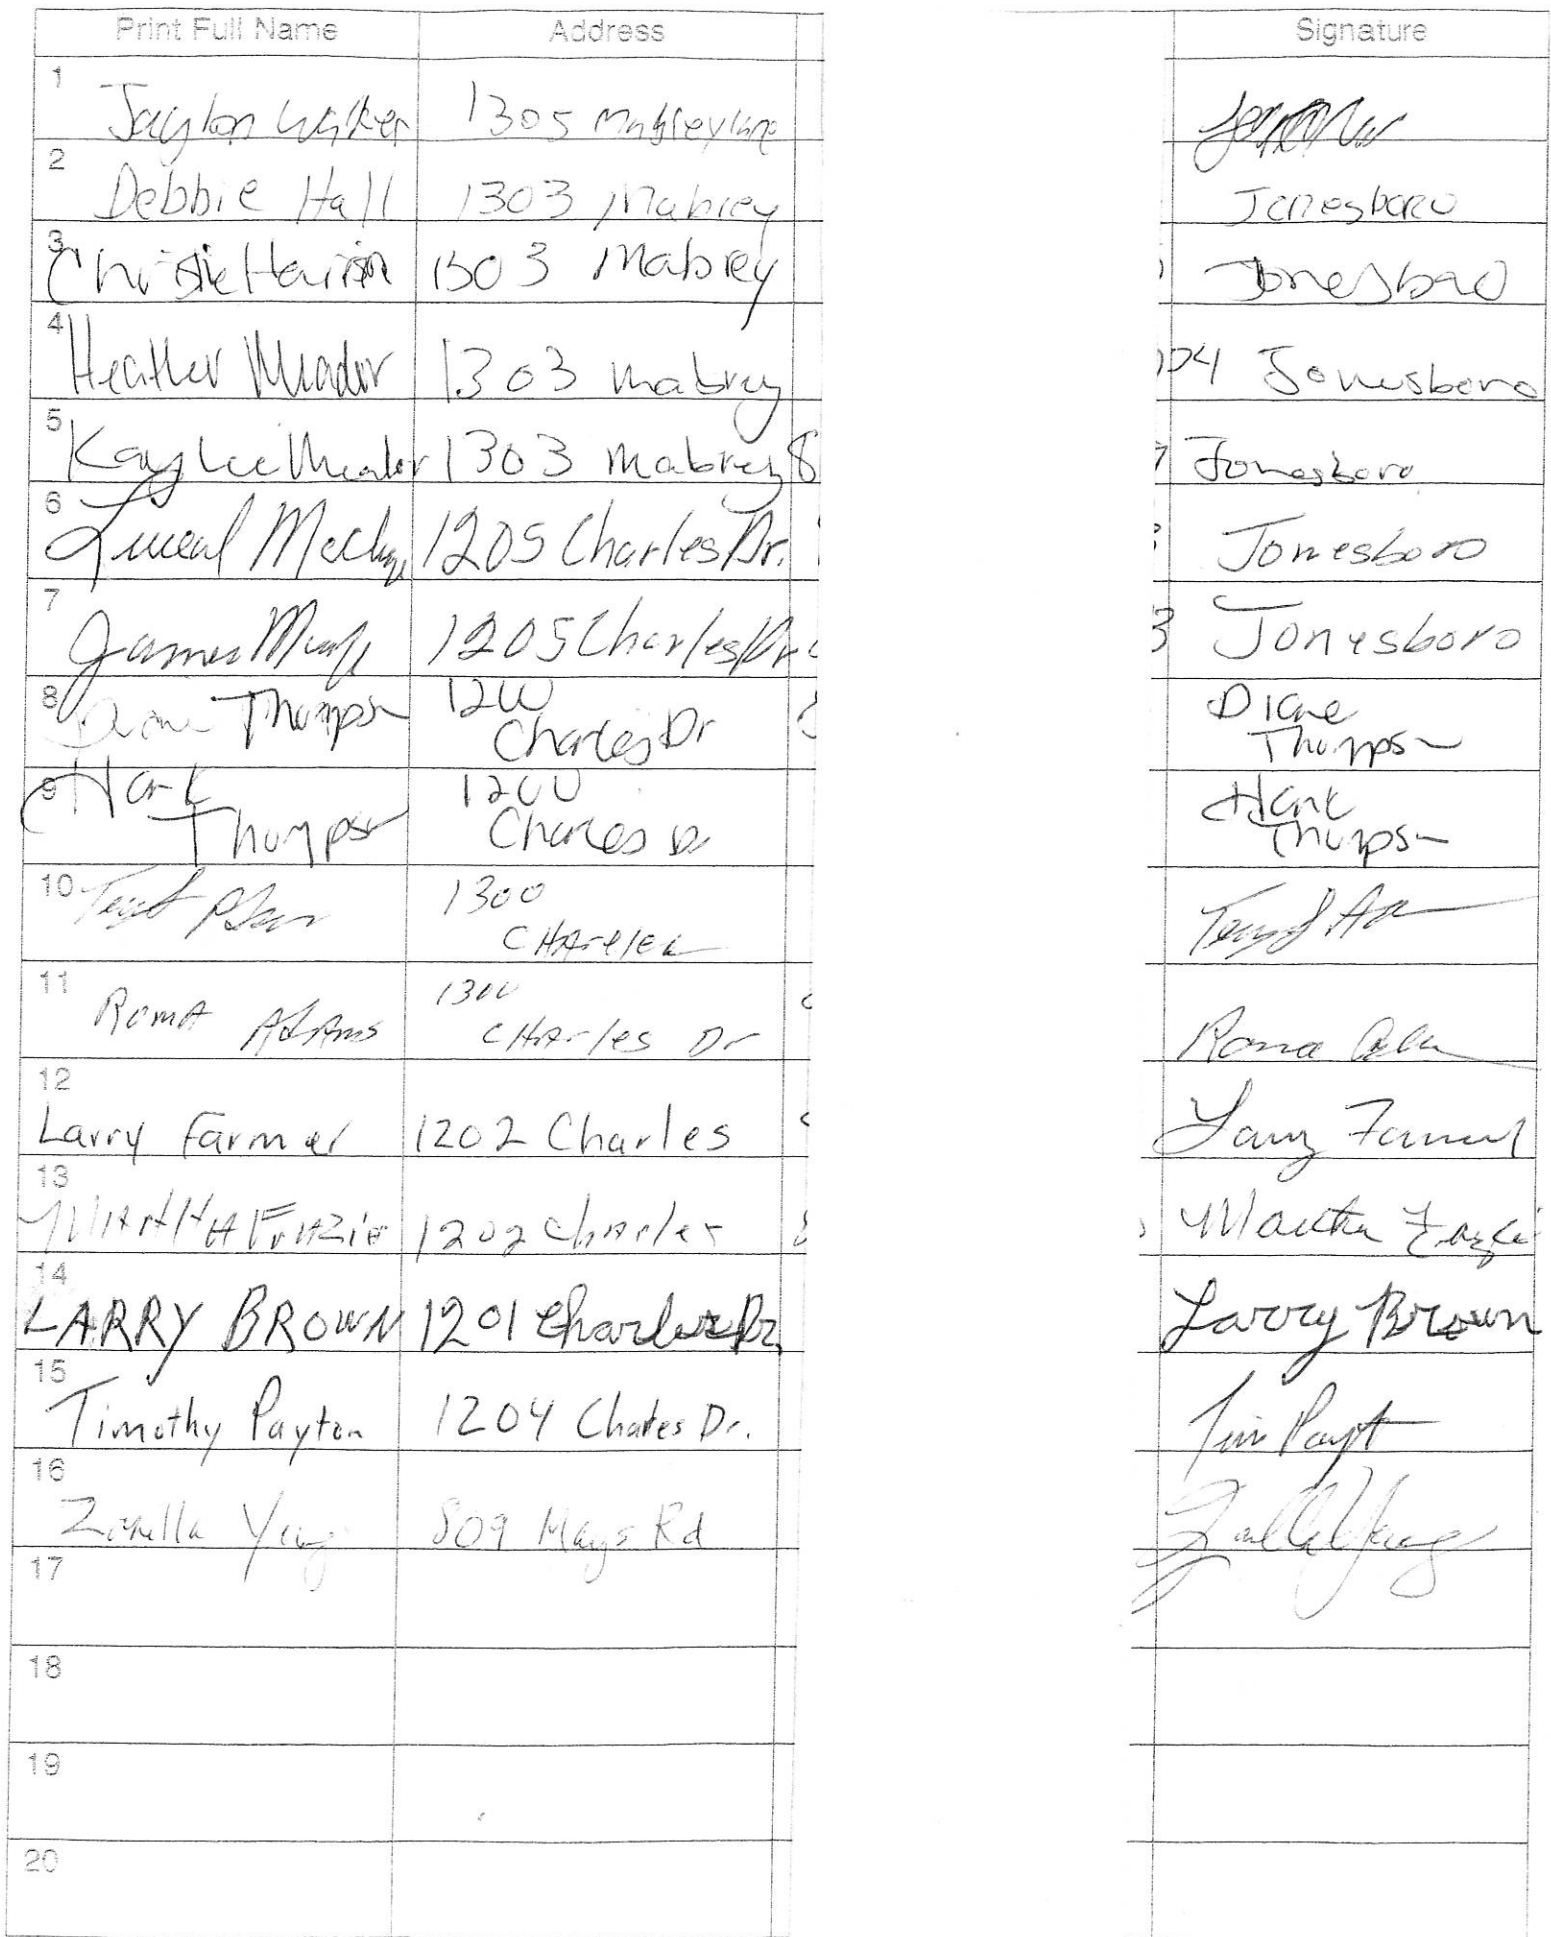 Print Full Name Address Signature
1 Jaylon Walker 1305 Mabrey lane
2 Debbie Hall 1303 Mabrey Jonesboro
3 Christie Harrison 1303 Mabrey Jonesboro
4 Heather Meador 1303 Mabrey 04 Jonesboro
5 Kaylee Meador 1303 Mabrey 8 Jonesboro
6 1205 Charles Dr. Jonesboro
7 James 1205 Charles Dr 3 Jonesboro
8 Diane Thompson 1200 Diane
Charles Dr Thompson
9 Hank 1200 Hank
Thompson Charles Dr Thompson
10 1300
11 Roma Adams 1300 Roma
Charles Dr
12
Larry Farmer 1202 Charles Larry Farmer
13
Martha Frazie 1202 Charles Martha
14
LARRY BROWN 1201 Charles Dr. Larry Brown
15
Timothy Payton 1204 Charles Dr. Tim Payt
16
Young 809 Mays Rd Young
17
18
19
20